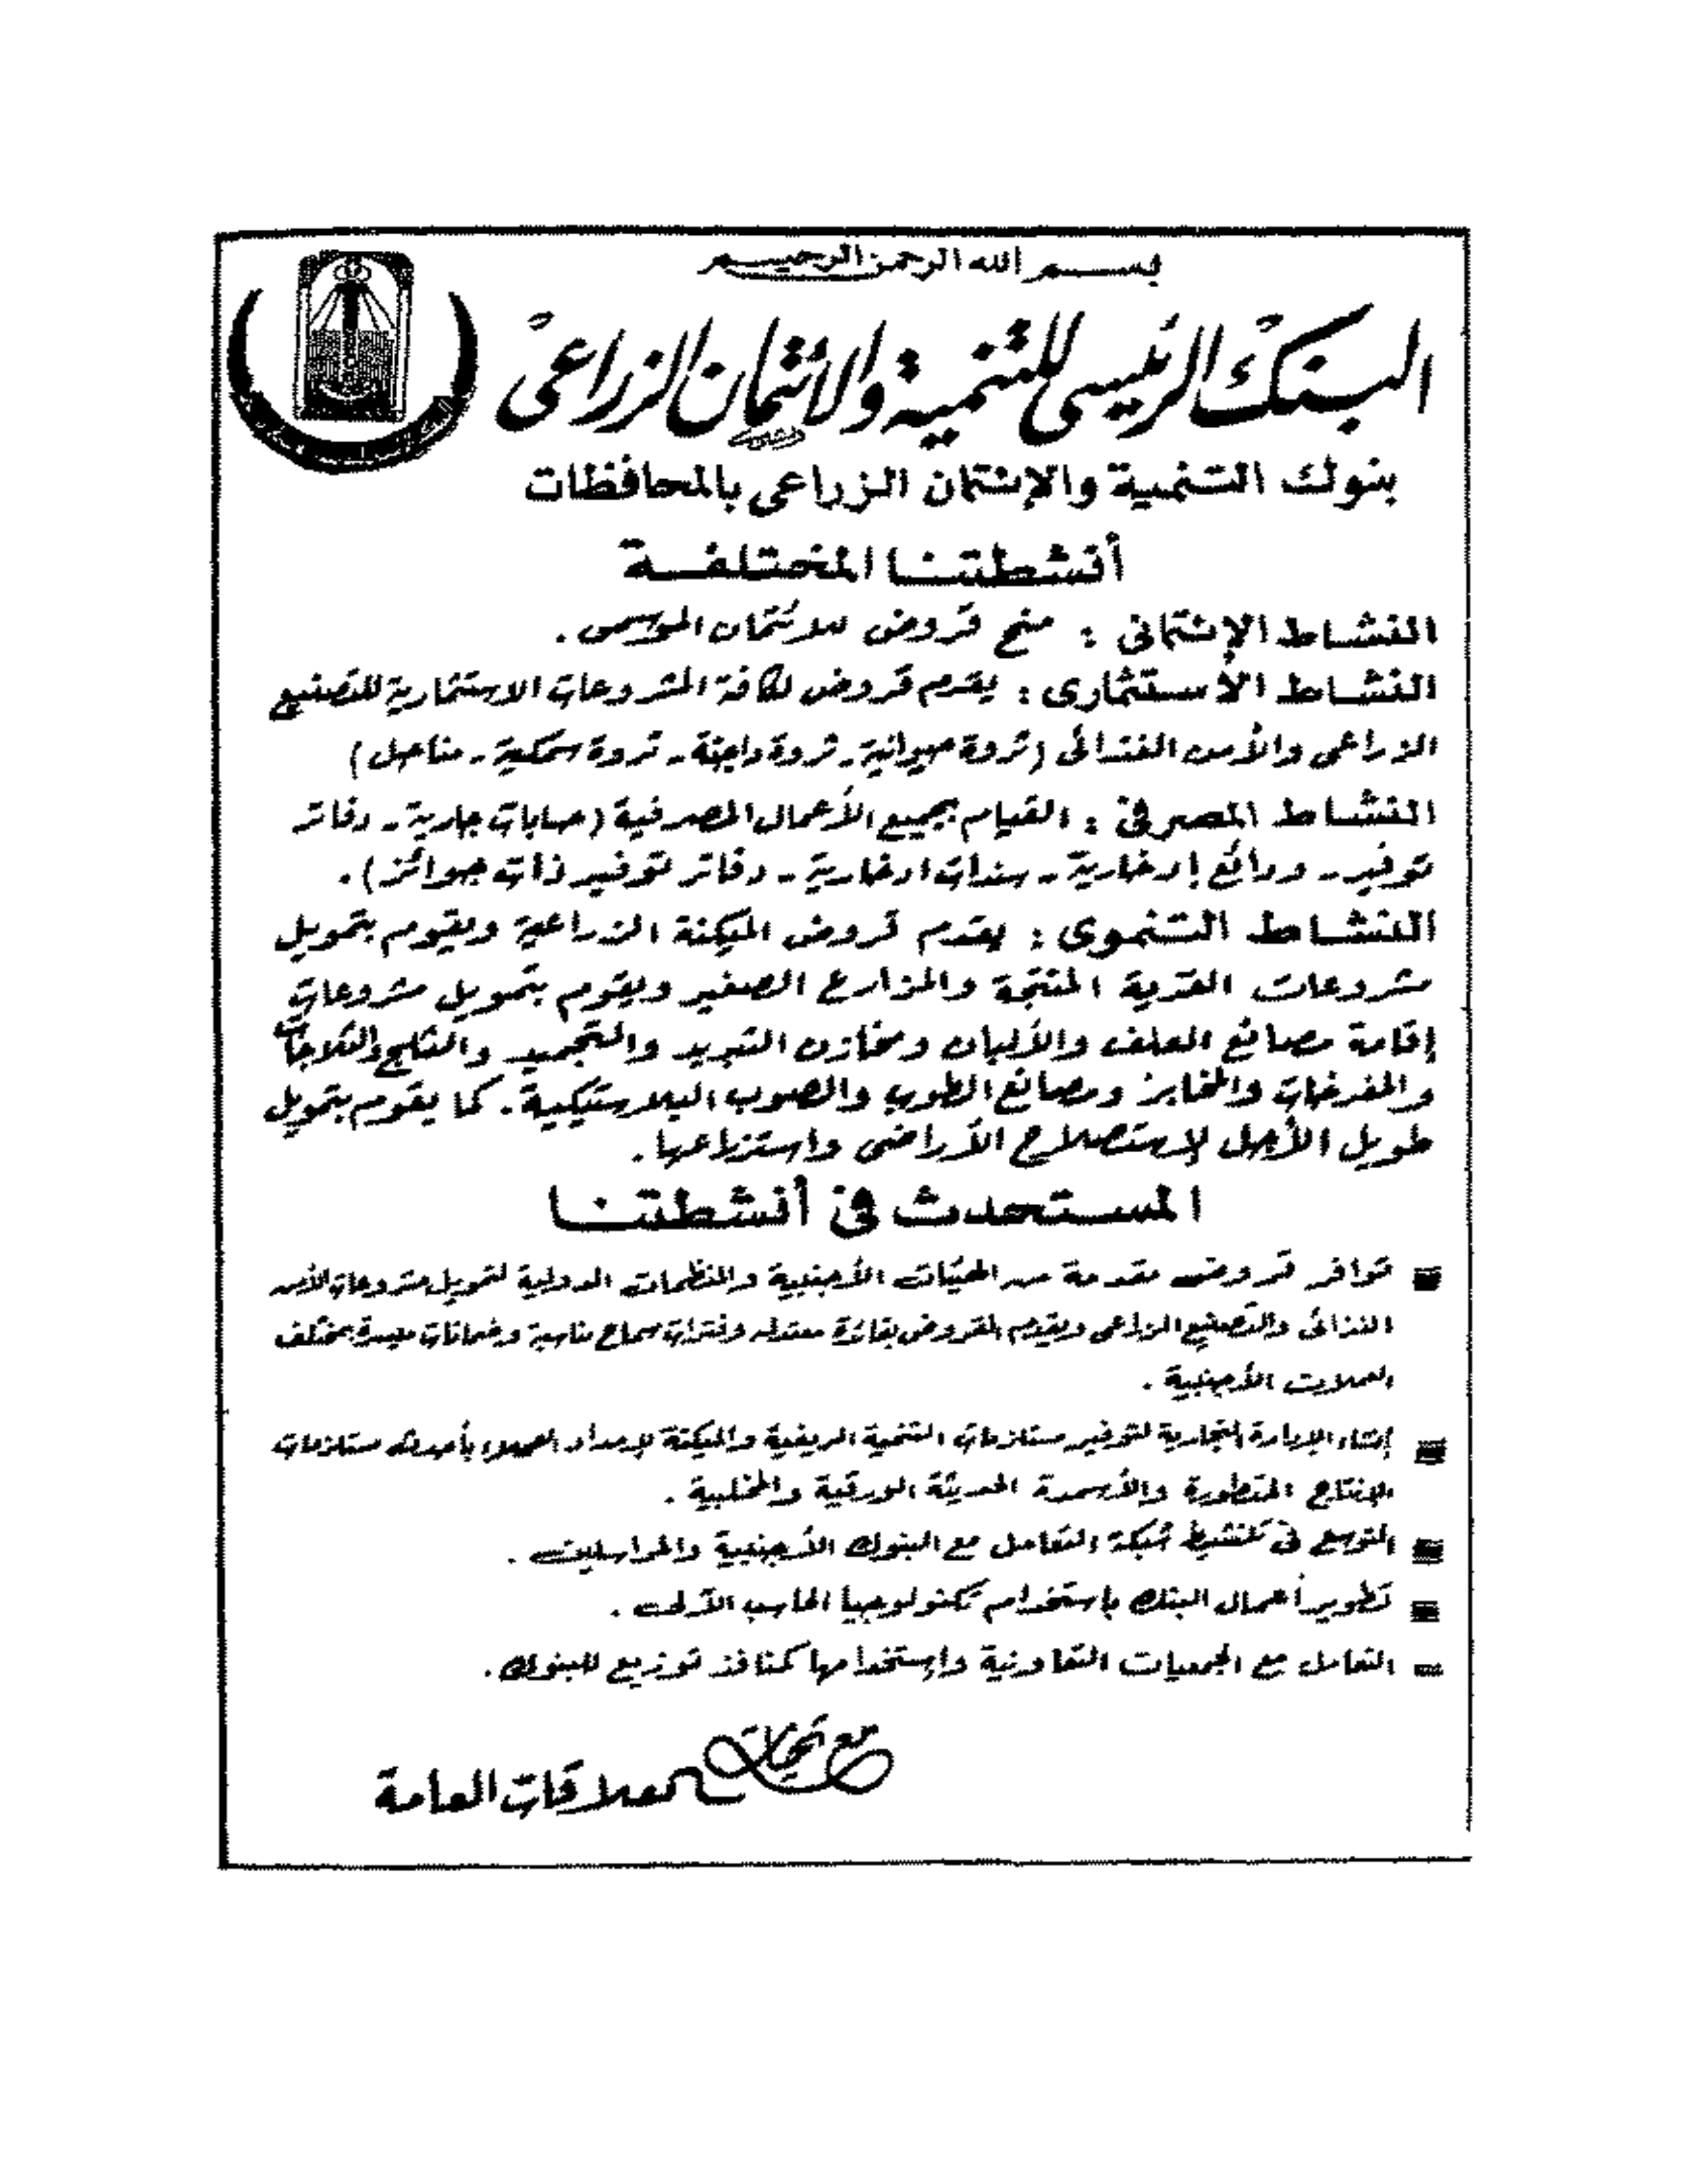 بسم الله الرحمن الرحيم
البنك الرئيسى للتنمية والائتمان الزراعى
بنوك التنمية والإئتمان الزراعى بالمحافظات
أنشطتنا المختلفة
النشاط الإئتمانى : منح قروض للائتمان الموسمى .
النشاط الأستثمارى : يقدم قروض لكافة المشروعات الاستثمارية للتصنيع
الزراعى والأمن الغذائى (ثروة حيوانية - ثروة داجنة - ثروة سمكية - مناحل)
النشاط المصرفى : القيام بجميع الأعمال المصرفية (حسابات جارية - دفاتر
توفير - ودائع إدخارية - سندات ادخارية - دفاتر توفير ذات جوائز) .
النشاط التنموى : يقدم قروض الميكنة الزراعية ويقوم بتمويل
مشروعات القرية المنتجة والمزارع الصغير ويقوم بتمويل مشروعات
إقامة مصانع العلف والألبان ومخازن التبريد والتجميد والثلج والثلاجات
والمفرخات والمخابز ومصانع الطوب والصوب البلاستيكية . كما يقوم بتمويل
طويل الأجل لإستصلاح الأراضى واستزراعها .
المستحدث فى أنشطتنا
توافر قروض مقدمة من الهيئات الأجنبية والمنظمات الدولية لتمويل مشروعات الأمن
الغذائى والتصنيع الزراعى ويقدم القروض بفائدة معتدله وفترات سماح مناسبة وضمانات ميسرة بمختلف
العملات الأجنبية .
إنشاء الإدارة التجارية لتوفير مستلزمات التنمية الريفية والميكنة لإمداد العملاء بأحدث مستلزمات
الإنتاج المتطورة والأسمدة الحديثة الورقية والمخلبية .
التوسع فى تنشيط شبكة التعامل مع البنوك الأجنبية والمراسلين .
تطوير أعمال البنك بإستخدام تكنولوجيا الحاسب الآلى .
التعامل مع الجمعيات التعاونية وإستخدامها كمنافذ توزيع للبنوك .
مع تحيات العلاقات العامة